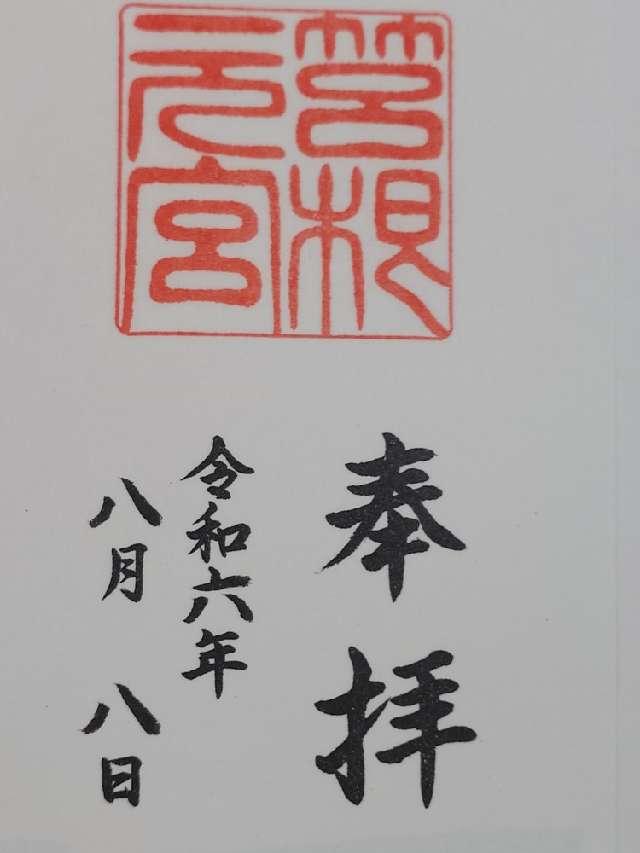 筥根
元宮
奉拝
令和六年
八月八日